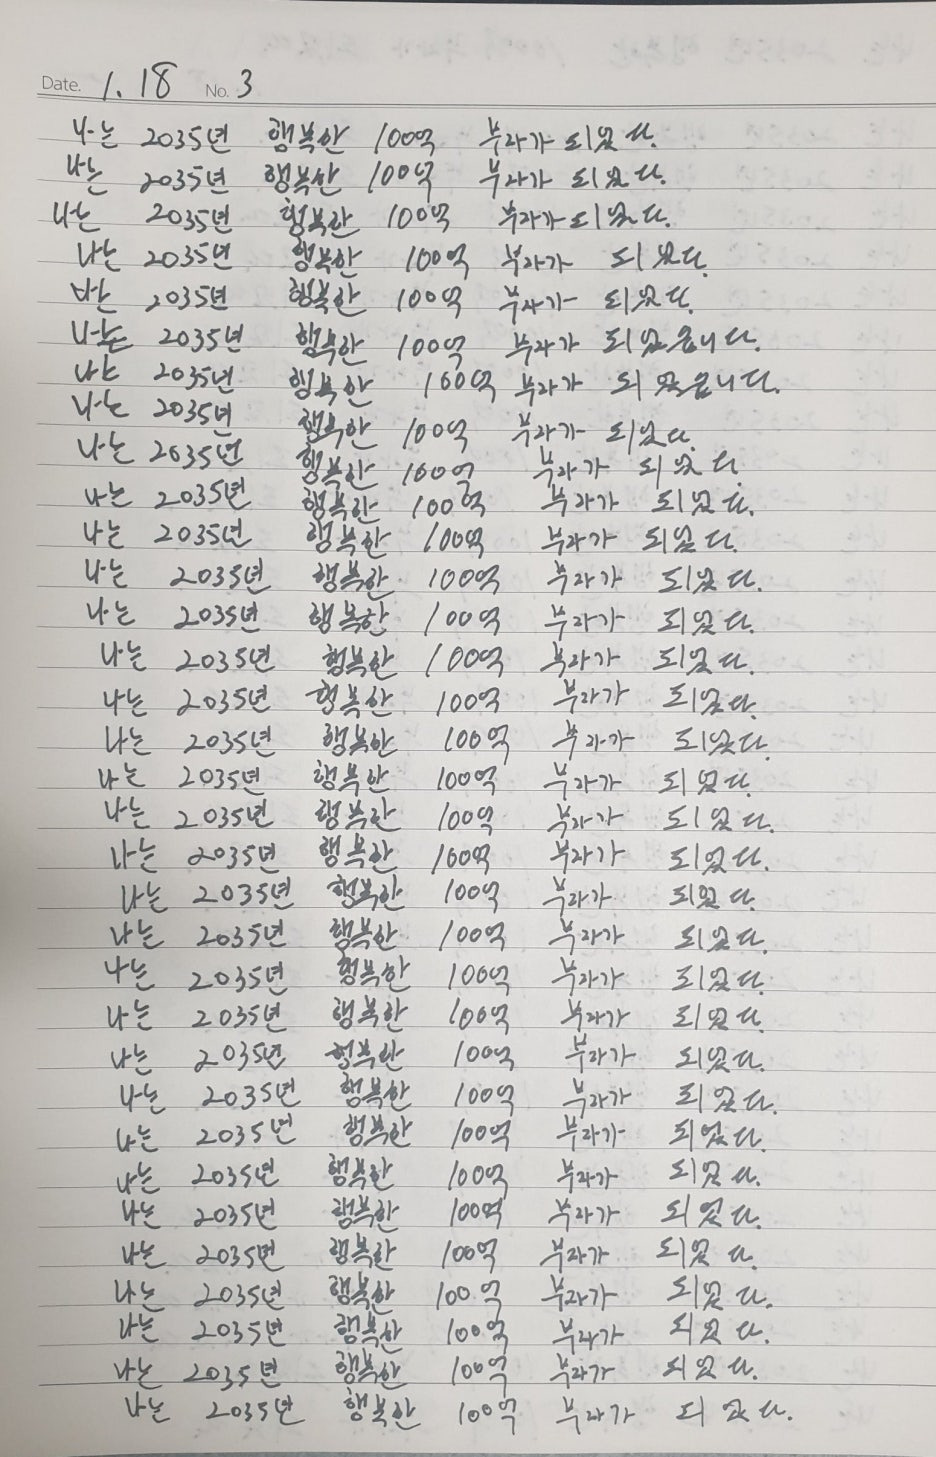 Date. 1. 18 No. 3
나는 2035년 행복한 100억 부자가 되었다.
나는 2035년 행복한 100억 부자가 되었다.
나는 2035년 행복한 100억 부자가 되었다.
나는 2035년 행복한 100억 부자가 되었다.
나는 2035년 행복한 100억 부자가 되었다.
나는 2035년 행복한 100억 부자가 되었습니다.
나는 2035년 행복한 100억 부자가 되었습니다.
나는 2035년 행복한 100억 부자가 되었다.
나는 2035년 행복한 100억 부자가 되었다.
나는 2035년 행복한 100억 부자가 되었다.
나는 2035년 행복한 100억 부자가 되었다.
나는 2035년 행복한 100억 부자가 되었다.
나는 2035년 행복한 100억 부자가 되었다.
나는 2035년 행복한 100억 부자가 되었다.
나는 2035년 행복한 100억 부자가 되었다.
나는 2035년 행복한 100억 부자가 되었다.
나는 2035년 행복한 100억 부자가 되었다.
나는 2035년 행복한 100억 부자가 되었다.
나는 2035년 행복한 100억 부자가 되었다.
나는 2035년 행복한 100억 부자가 되었다.
나는 2035년 행복한 100억 부자가 되었다.
나는 2035년 행복한 100억 부자가 되었다.
나는 2035년 행복한 100억 부자가 되었다.
나는 2035년 행복한 100억 부자가 되었다.
나는 2035년 행복한 100억 부자가 되었다.
나는 2035년 행복한 100억 부자가 되었다.
나는 2035년 행복한 100억 부자가 되었다.
나는 2035년 행복한 100억 부자가 되었다.
나는 2035년 행복한 100억 부자가 되었다.
나는 2035년 행복한 100억 부자가 되었다.
나는 2035년 행복한 100억 부자가 되었다.
나는 2035년 행복한 100억 부자가 되었다.
나는 2035년 행복한 100억 부자가 되었다.